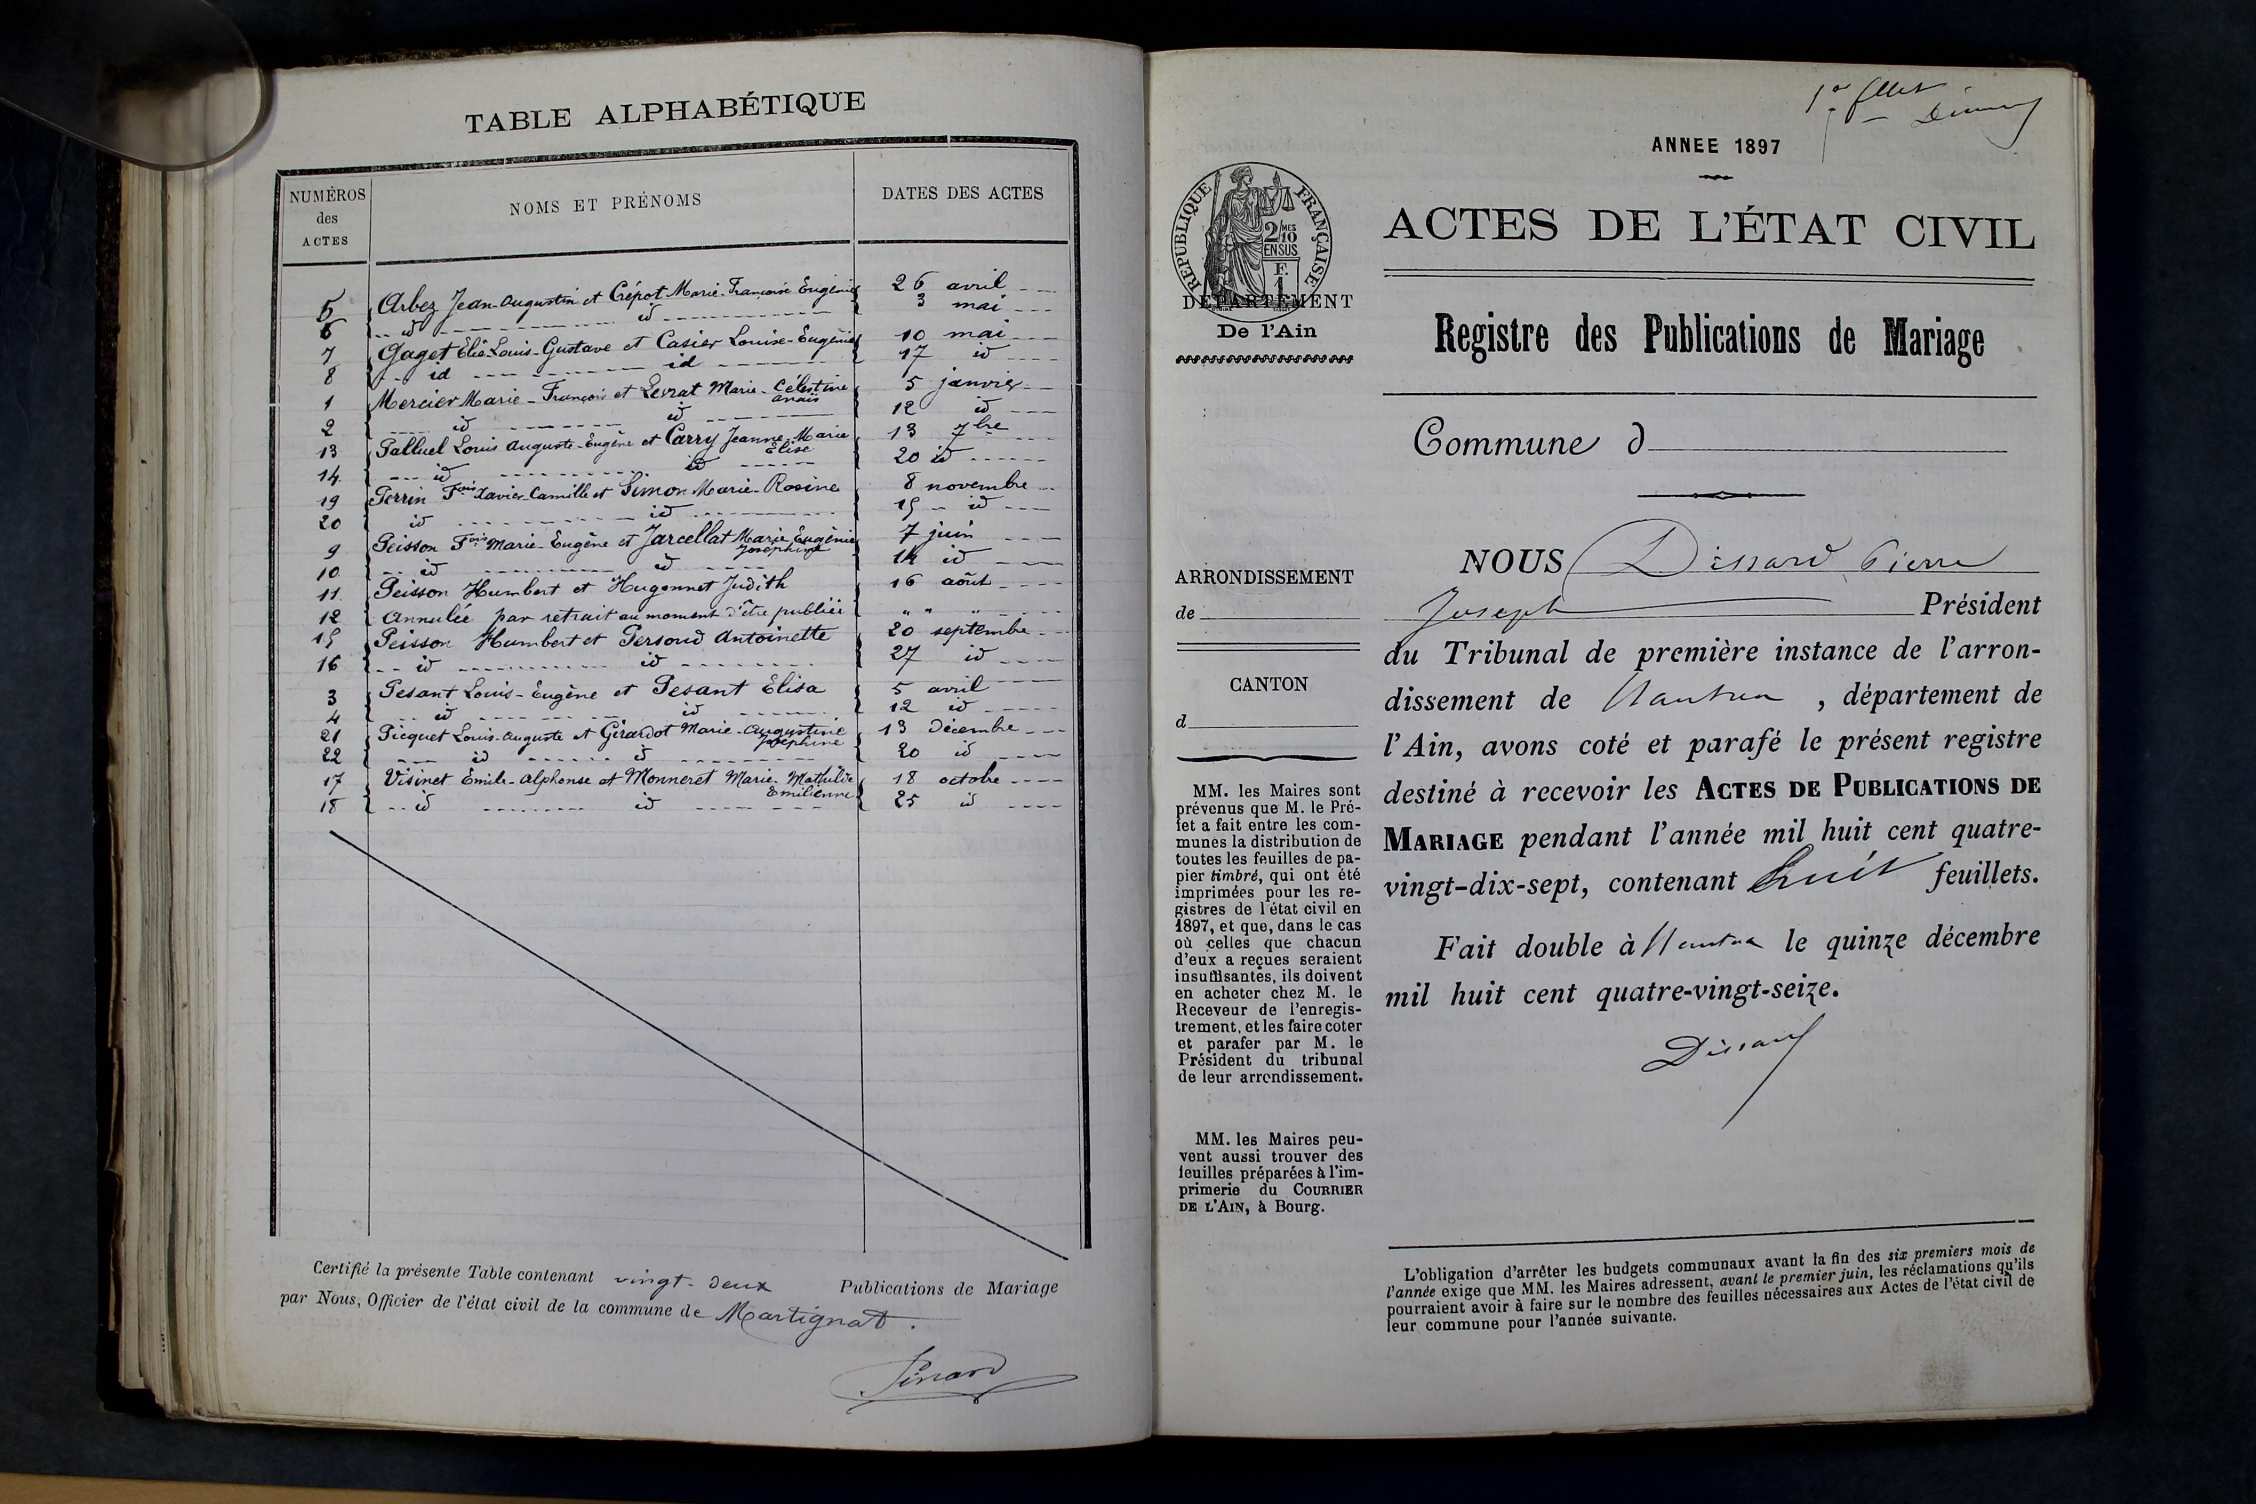 TABLE ALPHABÉTIQUE
NUMÉROS des ACTES
NOMS ET PRÉNOMS
DATES DES ACTES
5 Arbez Jean-Augustin et Crépot Marie-Françoise Eugénie 26 avril
6 id id 3 mai
7 Gaget Élie-Louis-Gustave et Casier Louise-Eugénie 10 mai
8 id id 17 id
1 Mercier Marie-François et Levrat Marie-Célestine Anaïs 5 janvier
2 id id 12 id
13 Palluel Louis Auguste-Eugène et Carry Jeanne-Marie Élise 13 7bre
14 id id 20 id
19 Perrin Fois Xavier-Camille et Simon Marie-Rosine 8 novembre
20 id id 15 id
9 Peisson Fois Marie-Eugène et Jarcellat Marie Eugénie Joséphine 7 juin
10 id id 14 id
11 Peisson Humbert et Hugonnet Judith 16 août
12 Annulée par retrait au moment d'être publiée " " "
15 Peisson Humbert et Persoud Antoinette 20 septembre
16 id id 27 id
3 Pesant Louis-Eugène et Pesant Élisa 5 avril
4 id id 12 id
21 Picquet Louis-Auguste et Girardot Marie-Augustine Joséphine 13 décembre
22 id id 20 id
17 Visinet Émile-Alphonse et Monneret Marie-Mathilde Émilienne 18 octobre
18 id id 25 id
Certifié la présente Table contenant vingt-deux Publications de Mariage
par Nous, Officier de l'état civil de la commune de Martignat.
1er fllet
ANNEE 1897
REPUBLIQUE FRANÇAISE
2/10 MES
EN SUS
F.
1
DEPARTEMENT
De l'Ain
ACTES DE L'ÉTAT CIVIL
Registre des Publications de Mariage
Commune d
ARRONDISSEMENT
de
CANTON
d
MM. les Maires sont
prévenus que M. le Pré-
fet a fait entre les com-
munes la distribution de
toutes les feuilles de pa-
pier timbré, qui ont été
imprimées pour les re-
gistres de l'état civil en
1897, et que, dans le cas
où celles que chacun
d'eux a reçues seraient
insuffisantes, ils doivent
en acheter chez M. le
Receveur de l'enregis-
trement, et les faire coter
et parafer par M. le
Président du tribunal
de leur arrondissement.
MM. les Maires peu-
vent aussi trouver des
feuilles préparées à l'im-
primerie du COURRIER
DE L'AIN, à Bourg.
NOUS Dissard Pierre
Joseph Président
du Tribunal de première instance de l'arron-
dissement de Nantua, département de
l'Ain, avons coté et parafé le présent registre
destiné à recevoir les ACTES DE PUBLICATIONS DE
MARIAGE pendant l'année mil huit cent quatre-
vingt-dix-sept, contenant huit feuillets.
Fait double à Nantua le quinze décembre
mil huit cent quatre-vingt-seize.
Dissard
L'obligation d'arrêter les budgets communaux avant la fin des six premiers mois de
l'année exige que MM. les Maires adressent, avant le premier juin, les réclamations qu'ils
pourraient avoir à faire sur le nombre des feuilles nécessaires aux Actes de l'état civil de
leur commune pour l'année suivante.